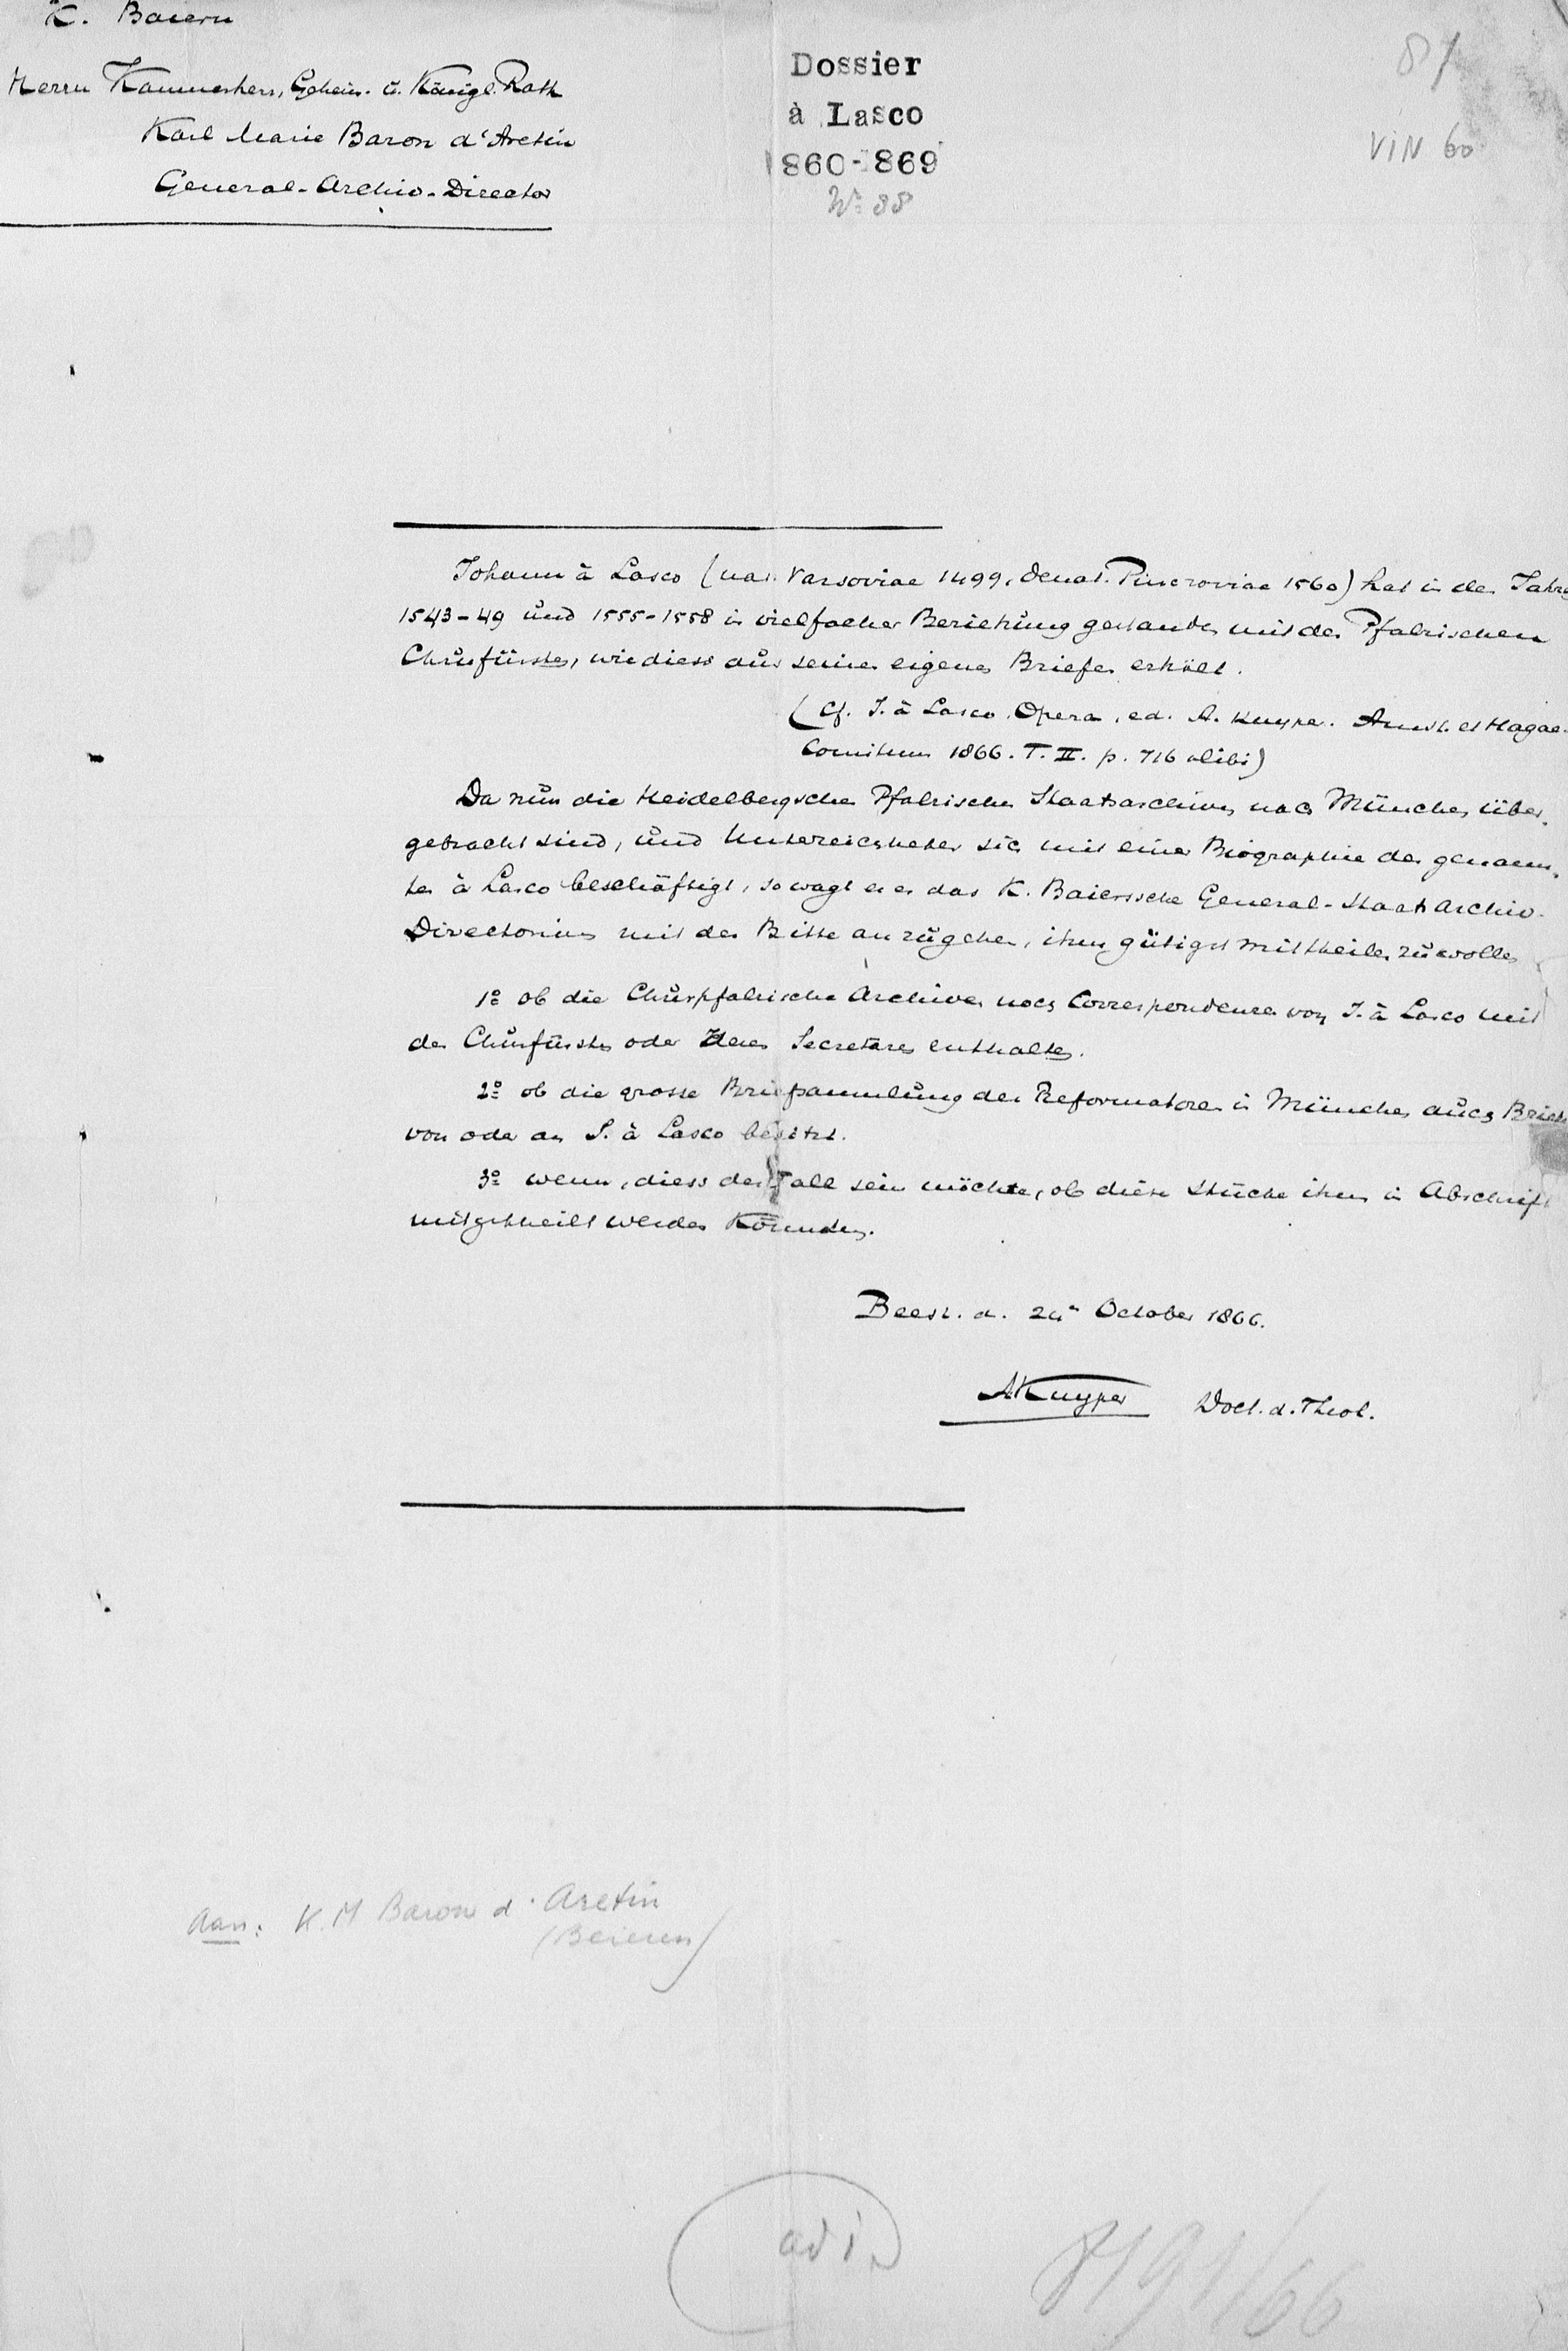 K. Baiern
Herrn Kammerherr, Geheim. ů. Königl. Rath
Karl Marie Baron d'Aretin
General-Archiv-Director
Dossier
à Lasco
1860-1869
No 88
81
VIN 60
Johann à Lasco (nat. Varsoviae 1499, denat. Pincroviae 1560) hat in den Jahre
1543-49 ůnd 1555-1558 in vielfacher Beziehůng gestanden mit den Pfalzischen
Chůrfürsten, wie diess aůs seinen eigenen Briefen erhält.
(Cf. J. à Lasco Opera, ed. A. Kuyper. Amst. et Hagae-
Comitum 1866. T. II. p. 716 alibi)
Da nůn die Heidelbergschen Pfalzischen Staatsarchiven nach München über-
gebracht sind, ůnd Unterzeichneter sich mit einer Biographie des genann-
ten à Lasco beschäftigt, so wagt er es das K. Baiersche General-Staatsarchiv-
Directorium mit der Bitte anzůgehen, ihm gütigst mittheilen zů wollen
1o ob die Chůrpfalzische Archiven noch Correspondenzen von J. à Lasco mit
den Chůrfürsten oder deren Secretären enthalten.
2o ob die grosse Briefsammlůng der Reformatoren in München aůch Briefe
von oder an J. à Lasco besitzt.
3o wenn, diess der Fall sein möchte, ob diese Stücke ihm in Abschrift
mitgetheilt werden könnden.
Beest. d. 24n October 1866.
AKuyper Doct. d. Theol.
Aan: K. M Baron d'Aretin
(Beieren)